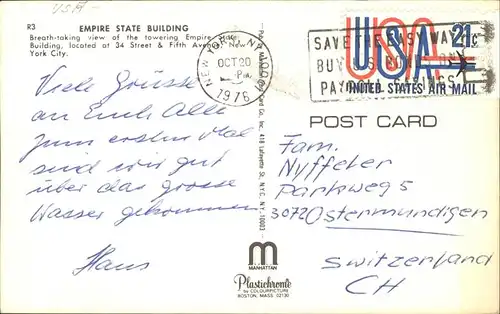 USA
R3 EMPIRE STATE BUILDING
Breath-taking view of the towering Empire State
Building, located at 34 Street & Fifth Avenue, New
York City.
Viele Grüsse
an Euch Alle
zum ersten Mal
sind wir gut
über das grosse
Wasser gekommen
Hans
Card Co., Inc. 418 Lafayette St., N.Y.C. N.Y. 10003
NEW YORK, N.Y. 100
OCT 20
PM
1976
SAVE THE EASY WAY
BUY U.S. BONDS ON
PAYROLL SAVINGS
USA 21
UNITED STATES AIR MAIL
POST CARD
Fam.
Nyffeler
Parkweg 5
3072 Ostermundigen
Switzerland
CH
m
MANHATTAN
Plastichrome
by COLOURPICTURE
BOSTON, MASS. 02130